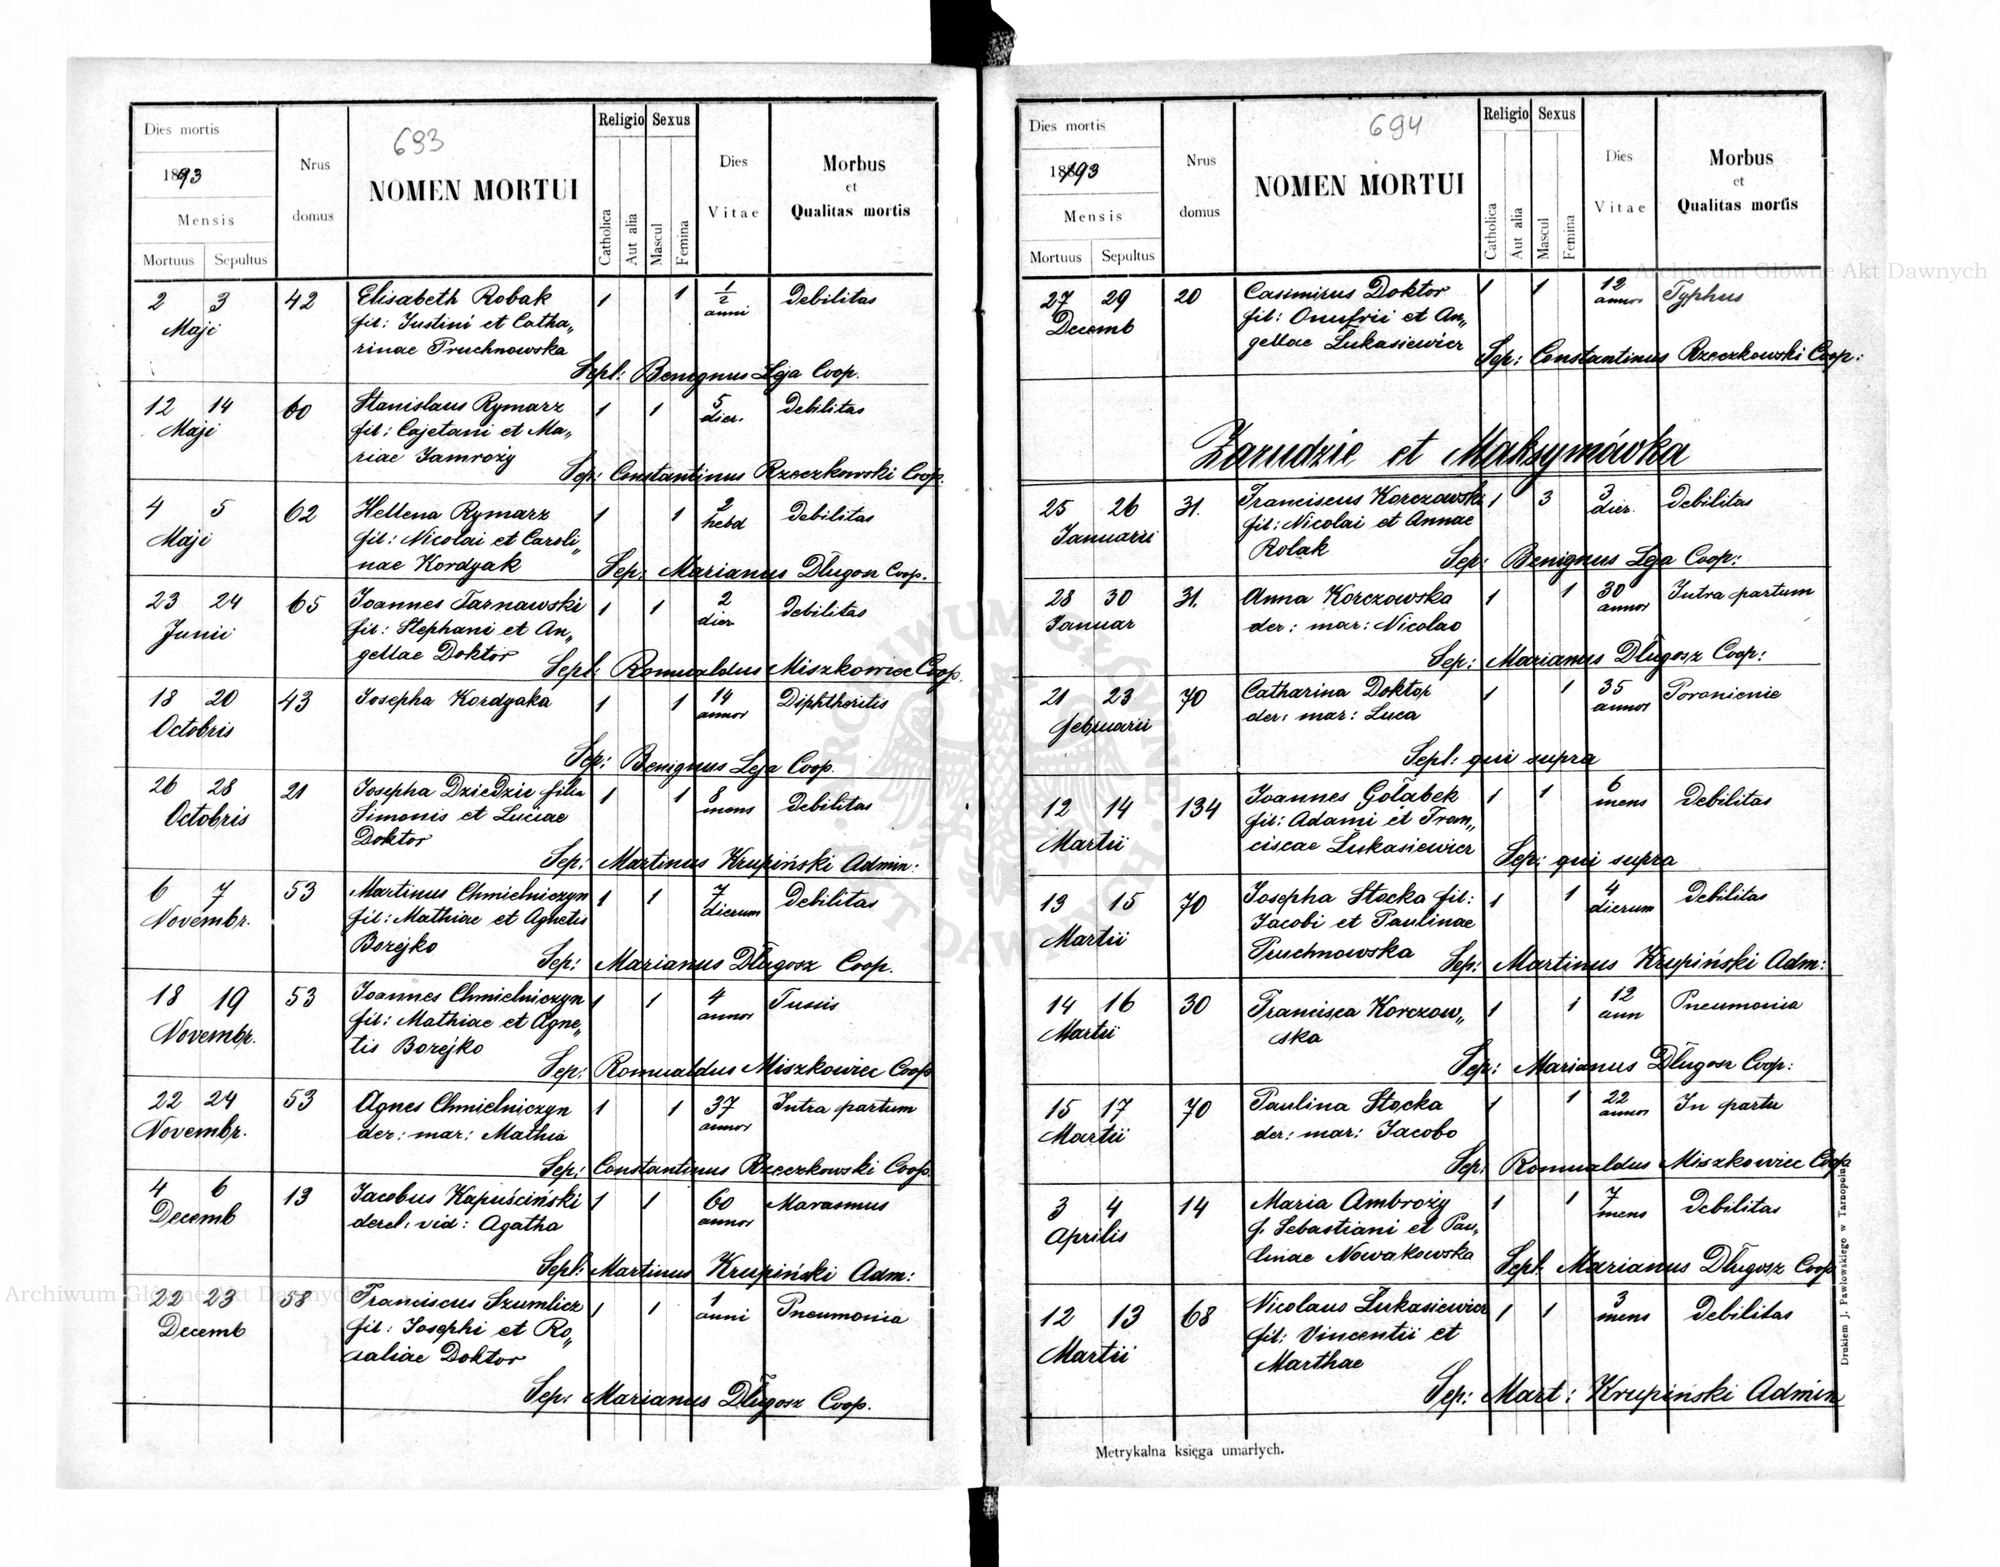 693
Dies mortis
1893
Mensis
Mortuus Sepultus
Nrus domus
NOMEN MORTUI
Religio Sexus
Catholica
Aut alia
Mascul
Femina
Dies Vitae
Morbus
et
Qualitas mortis
2 3 42 Elisabeth Robak 1 1 1/2 Debilitas
Maji fil: Justini et Catha„ anni
rinae Pruchnowska
Sepl: Benignus Leja Coop.
12 14 60 Stanislaus Rymarz 1 1 5 Debilitas
Maji fil: Cajetani et Ma„ dier.
riae Jamroży
Sep: Constantinus Rzeczkowski Coop.
4 5 62 Hellena Rymarz 1 1 2 Debilitas
Maji fil: Nicolai et Caroli„ hebd
nae Kordyak
Sep: Marianus Długosz Coop.
23 24 65 Joannes Tarnawski 1 1 2 Debilitas
Junii fil: Stephani et An„ dier
gellae Doktor
Sepl: Romualdus Miszkowiec Coop.
18 20 43 Josepha Kordyaka 1 1 14 Diphtheritis
Octobris annor
Sep: Benignus Leja Coop.
26 28 21 Josepha Dziedzic filia 1 1 8 Debilitas
Octobris Simonis et Luciae mens
Doktor
Sep: Martinus Krupiński Admin:
6 7 53 Martinus Chmielniczyn 1 1 7 Debilitas
Novembr. fil: Mathiae et Agnetis dierum
Borejko
Sep: Marianus Długosz Coop.
18 19 53 Joannes Chmielniczyn 1 1 4 Tussis
Novembr. fil: Mathiae et Agne„ annor
tis Borejko
Sep: Romualdus Miszkowiec Coop
22 24 53 Agnes Chmielniczyn 1 1 37 Intra partum
Novembr. der: mar: Mathia annor
Sep: Constantinus Rzeczkowski Coop.
4 6 13 Jacobus Kapuściński 1 1 60 Marasmus
Decemb derel: vid: Agatha annor
Sepl: Martinus Krupiński Adm:
22 23 58 Franciscus Szumlicz 1 1 1 Pneumonia
Decemb fil: Josephi et Ro„ anni
saliae Doktor
Sep: Marianus Długosz Coop.
694
Dies mortis
1893
Mensis
Mortuus Sepultus
Nrus domus
NOMEN MORTUI
Religio Sexus
Catholica
Aut alia
Mascul
Femina
Dies Vitae
Morbus
et
Qualitas mortis
27 29 20 Casimirus Doktor 1 1 12 Typhus
Decemb fil: Onufrii et An„ annor
gellae Łukasiewicz
Sep: Constantinus Rzeczkowski Coop:
Zarudzie et Maksymówka
25 26 31. Franciscus Korczowski 1 3 3 Debilitas
Januarii fil: Nicolai et Annae dier.
Rolak
Sep: Benignus Leja Coop:
28 30 31. Anna Korczowska 1 1 30 Intra partum
Januar der: mar: Nicolao annor
Sep: Marianus Długosz Coop:
21 23 70 Catharina Doktor 1 1 35 Poronienie
Februarii der: mar: Luca annor
Sepl: qui supra
12 14 134 Joannes Gołąbek 1 1 6 Debilitas
Martii fil: Adami et Fran„ mens
ciscae Łukasiewicz
Sep: qui supra
13 15 70 Josepha Stocka fil: 1 1 4 Debilitas
Martii Jacobi et Paulinae dierum
Pruchnowska
Sep: Martinus Krupiński Adm:
14 16 30 Francisca Korczow„ 1 1 12 Pneumonia
Martii ska ann
Sep: Marianus Długosz Coop:
15 17 70 Paulina Stocka 1 1 22 In partu
Martii der: mar: Jacobo annor
Sep: Romualdus Miszkowiec Coop
3 4 14 Maria Ambroży 1 1 7 Debilitas
Aprilis f. Sebastiani et Pau„ mens
linae Nowakowska
Sepl: Marianus Długosz Coop
12 13 68 Nicolaus Łukasiewicz 1 1 3 Debilitas
Martii fil: Vincentii et mens
Marthae
Sep: Mart: Krupiński Admin
Metrykalna księga umarłych.
Drukiem J. Pawłowskiego w Tarnopolu
Archiwum Główne Akt Dawnych
Archiwum Główne Akt Dawnych
ARCHIWUM GŁÓWNE AKT DAWNYCH